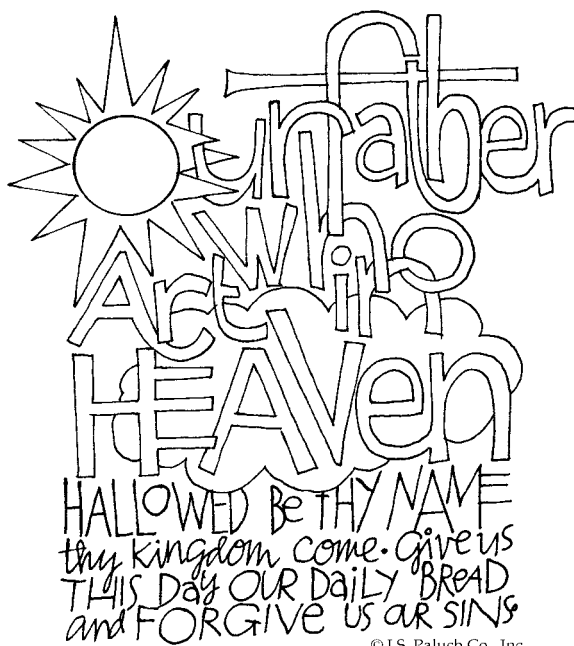 Our father
who
Art in
HEAVen
HALLOWED Be THY NAME
thy kingdom come. Give us
THIS Day OUR DaiLY BREAD
and FORGIVe us OUR SINS
© J.S. Paluch Co., Inc.